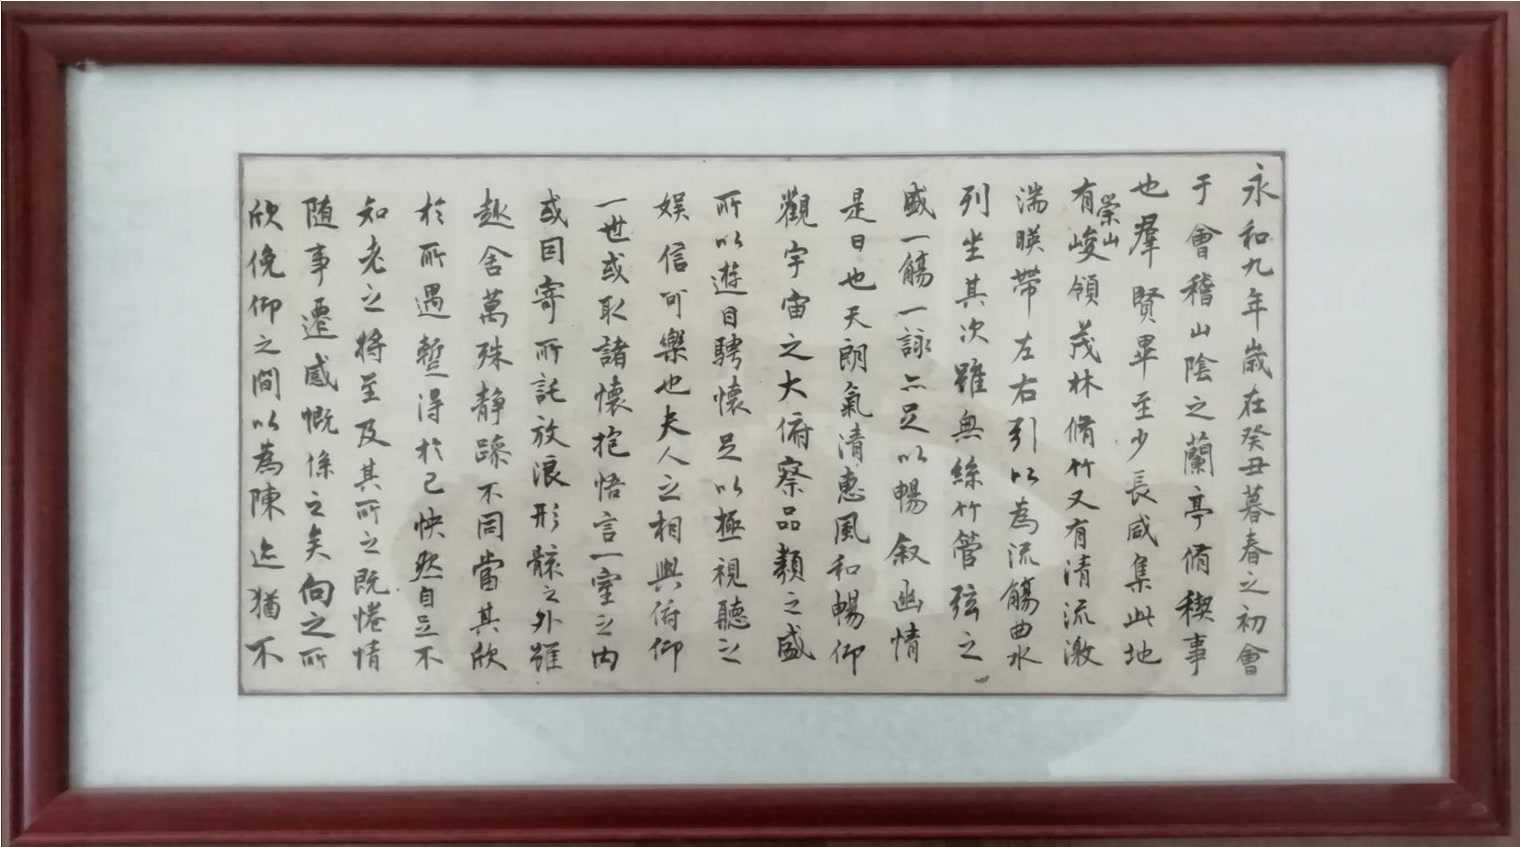 永和九年歲在癸丑暮春之初會
于會稽山陰之蘭亭脩稧事
也羣賢畢至少長咸集此地
有崇山峻領茂林脩竹又有清流激
湍暎帶左右引以為流觴曲水
列坐其次雖無絲竹管弦之
盛一觴一詠亦足以暢叙幽情
是日也天朗氣清惠風和暢仰
觀宇宙之大俯察品類之盛
所以遊目騁懷足以極視聽之
娱信可樂也夫人之相與俯仰
一世或取諸懷抱悟言一室之內
或因寄所託放浪形骸之外雖
趣舍萬殊靜躁不同當其欣
於所遇暫得於己怏然自足不
知老之將至及其所之既惓情
隨事遷感慨係之矣向之所
欣俛仰之間以為陳迹猶不